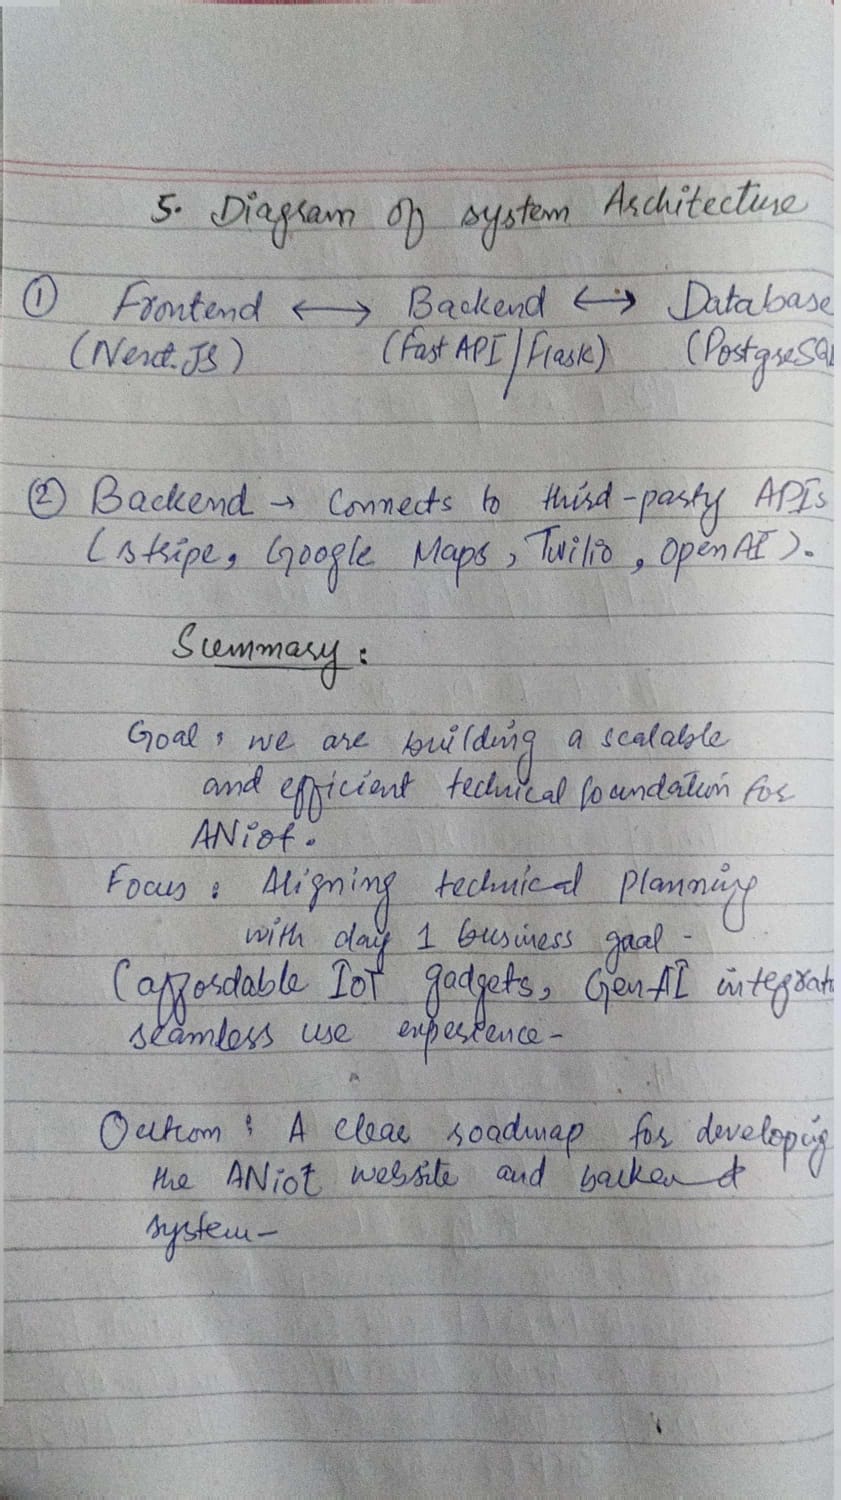 5. Diagram of system Architecture
① Frontend ⟷ Backend ⟷ Database
(Next.JS) (Fast API/Flask) (PostgreSQL
② Backend → Connects to third-party APIs
(stripe, Google Maps, Twilio, OpenAI).
Summary:
Goal: we are building a scalable
and efficient technical foundation for
ANiot.
Focus: Aligning technical planning
with day 1 business goal-
(affordable IoT gadgets, GenAI integrat
seamless use experience-
Outcom: A clear roadmap for developing
the ANiot website and backend
system-